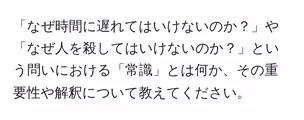 「なぜ時間に遅れてはいけないのか？」や
「なぜ人を殺してはいけないのか？」とい
う問いにおける「常識」とは何か、その重
要性や解釈について教えてください。